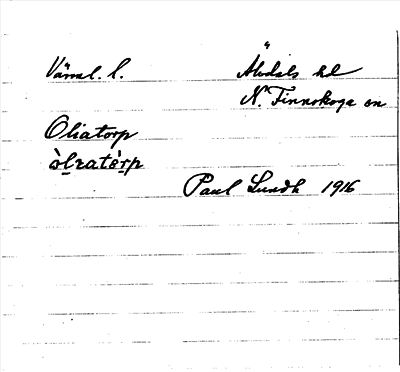 Värml. l. Älvdals hd
N. Finnskoga sn
Oliatorp
òlɩatòrp
Paul Lundh 1916